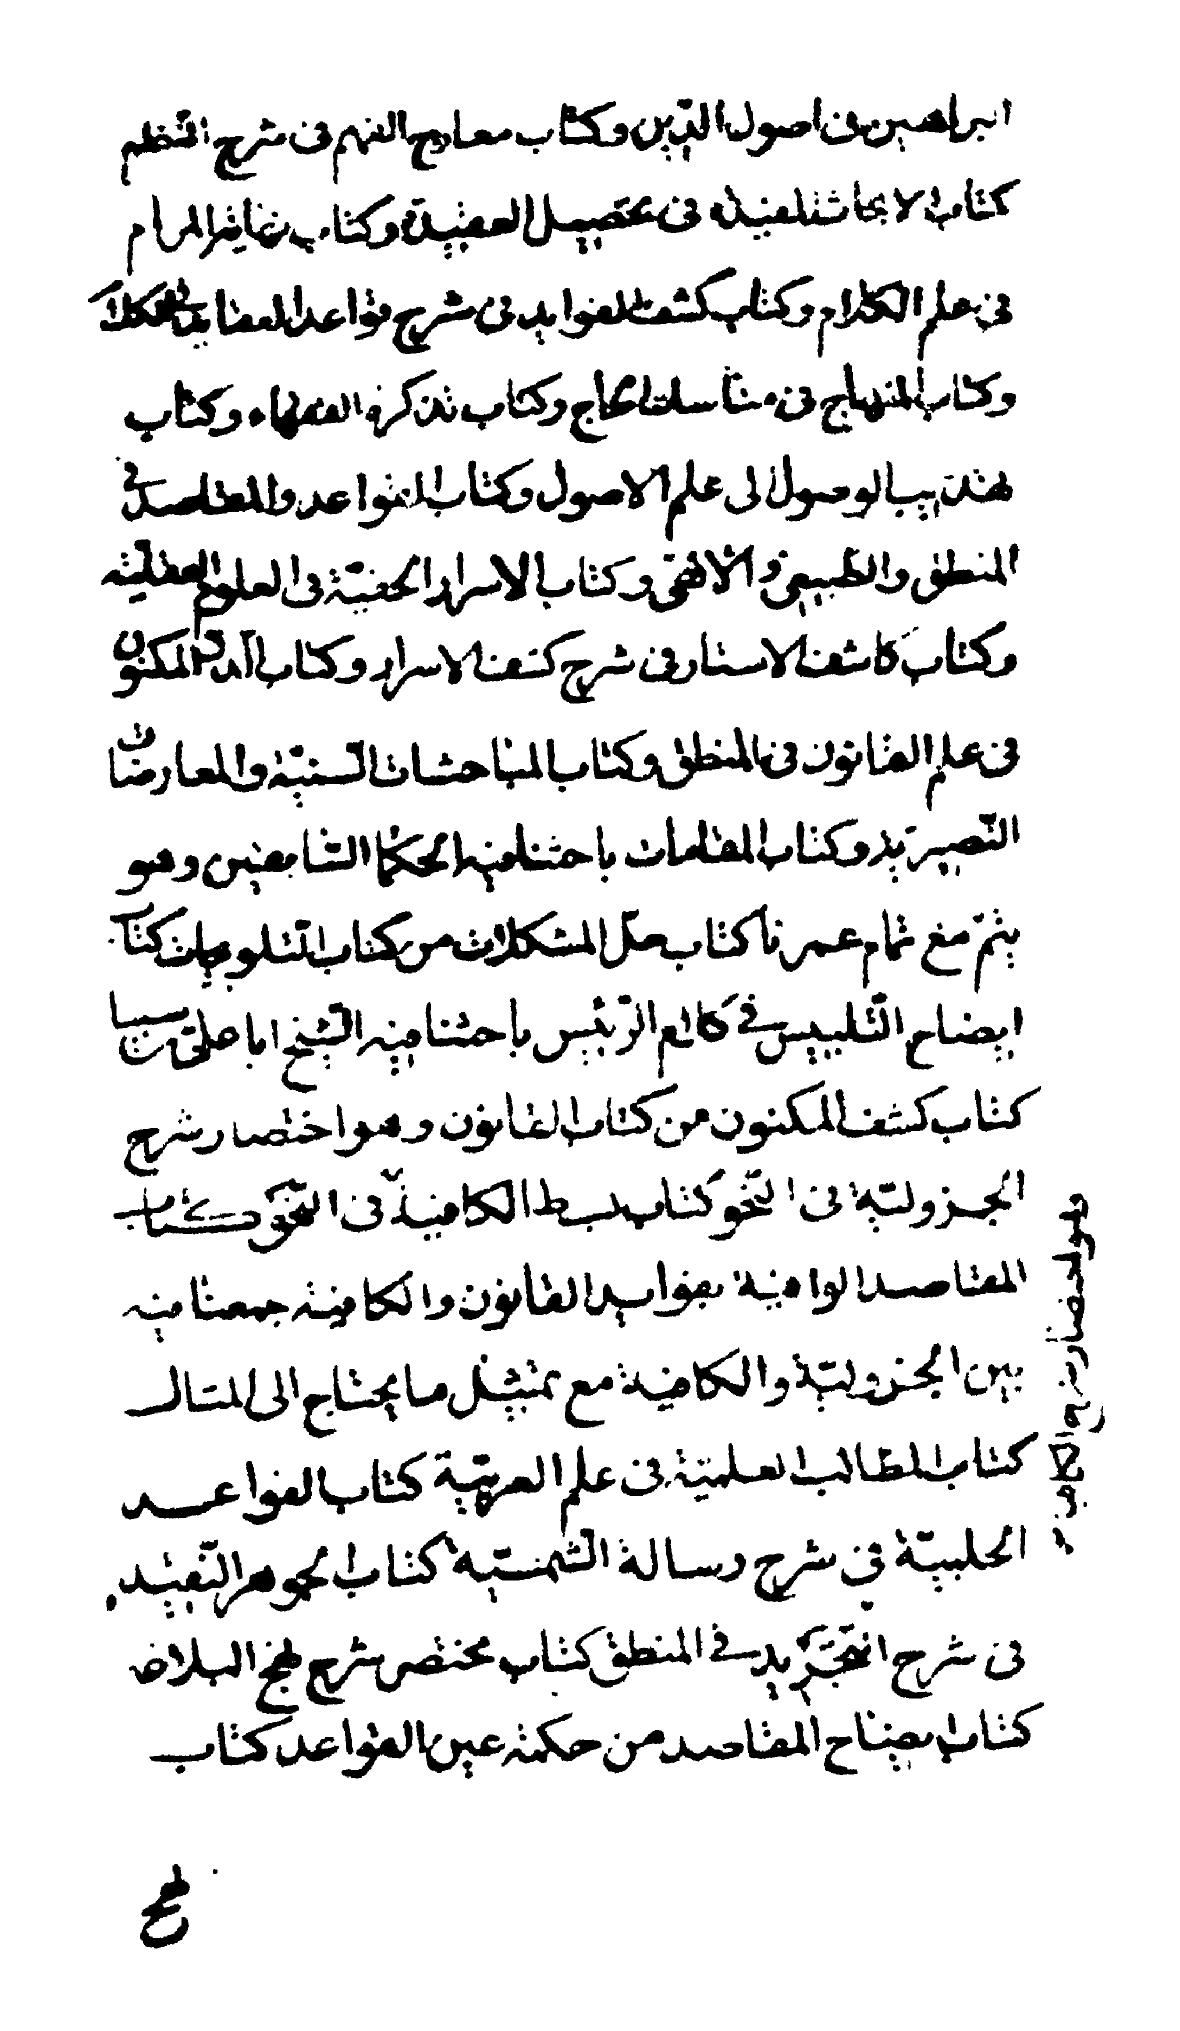 ابراهين في اصول الدّين وكتاب معارج الفهم في شرح النّظم
كتاب الابحاث المفيدة في تحصيل العقيدة وكتاب نهاية المرام
في علم الكلام وكتاب كشف الفوايد في شرح قواعد العقايد في الكلام
وكتاب المنهاج في مناسك الحاج وكتاب تذكرة الفقهاء وكتاب
تهذيب الوصول الى علم الاصول وكتاب القواعد والمقاصد في
المنطق والطّبيعي والالٰهي وكتاب الاسرار الخفيّة في العلوم العقليّة
وكتاب كاشف الاستار في شرح كشف الاسرار وكتاب الدر المكنون
في علم القانون في المنطق وكتاب المباحثات السّنيّة والمعارضات
النّصيريّة وكتاب المقامات باحثنا فيه الحكما السّابقين وهو
يتمّ مع تمام عمرنا كتاب حلّ المشكلات من كتاب التّلويحات كتاب
ايضاح التّلبيس في كلام الرّئيس باحثنا فيه الشّيخ ابا علي بن سينا
كتاب كشف المكنون من كتاب القانون وهو اختصار شرح
الجزوليّة في النّحو كتاب بسط الكافية في النّحو كتاب
المقاصد الوافية بفوايد القانون والكافية جمعنا فيه
بين الجزوليّة والكافية مع تمثيل ما يحتاج الى المثال
كتاب المطالب العلميّة في علم العربيّة كتاب القواعد
الجليّة في شرح رسالة الشّمسيّة كتاب الجوهر النّضيد
في شرح التّجريد في المنطق كتاب مختصر شرح نهج البلاغة
كتاب ايضاح المقاصد من حكمة عين القواعد كتاب
وهو اختصار شرح الكافية
نهج